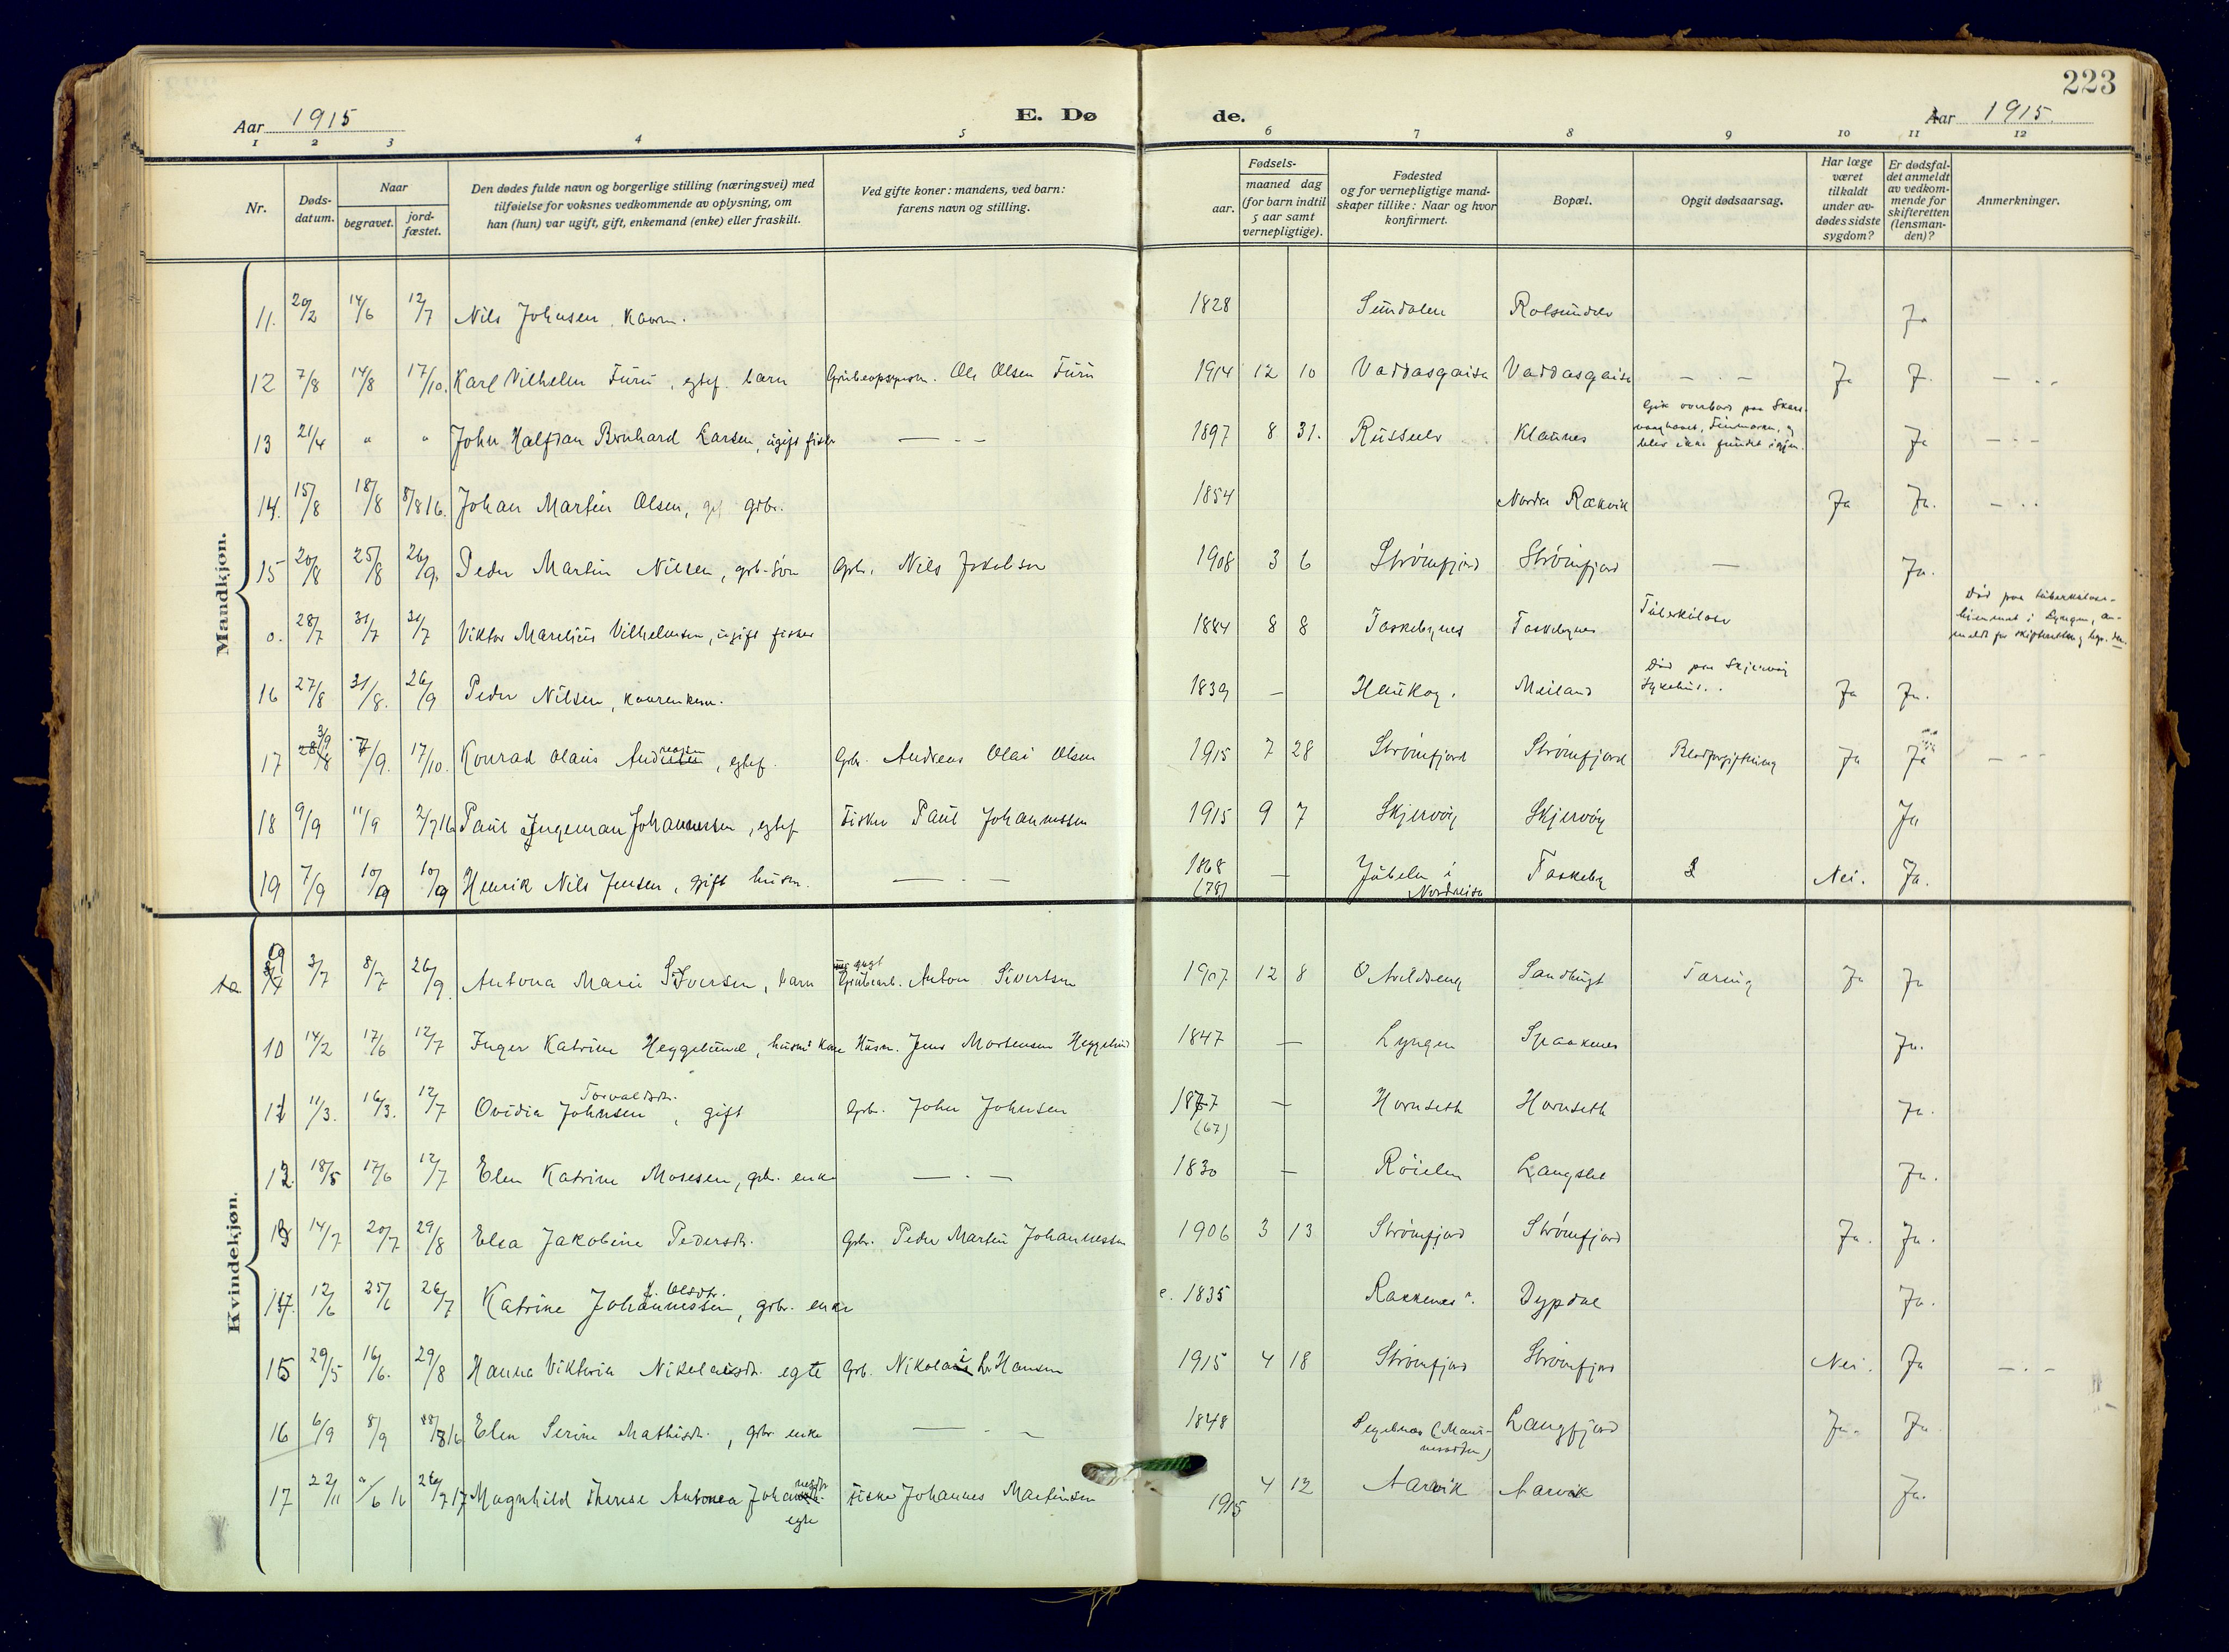 223
Aar 1915
E. Dø
de.
Aar 1915.
1 2 3 4 5 6 7 8 9 10 11 12
Nr.
Døds-
datum.
Naar
begravet.
jord-
fæstet.
Den dødes fulde navn og borgerlige stilling (næringsvei) med
tilføielse for voksnes vedkommende av oplysning, om
han (hun) var ugift, gift, enkemand (enke) eller fraskilt.
Ved gifte koner: mandens, ved barn:
farens navn og stilling.
Fødsels-
aar.
maaned dag
(for barn indtil
5 aar samt
vernepligtige).
Fødested
og for vernepligtige mand-
skaper tillike: Naar og hvor
konfirmert.
Bopæl.
Opgit dødsaarsag.
Har læge
været
tilkaldt
under av-
dødes sidste
sygdom?
Er dødsfal-
det anmeldt
av vedkom-
mende for
skifteretten
(lensman-
den)?
Anmerkninger.
Mandkjøn.
11. 20/2 14/6 12/7 Nils Johnsen, kaarm. 1828 Sundalen Rotsundelv Ja
12 7/8 14/8 17/10. Karl Vilhelm Furu, egtef. barn Ole Olsen Furu 1914 12 10 Vaddasgaisa Vaddasgaisa — . — Ja J. — . .
Gik overbord paa
13 21/4 " " John Halfdan Bernhard Larsen, ugift fisker — . — 1897 8 31. Russelv Klaunes Finmarken, og Ja — . —
blev ikke fundet igjen.
14. 15/8 18/8 8/8 16. Johan Martin Olsen, grbr. 1854 Nordre Rækvik Ja Ja. — . .
15 20/8 25/8 26/9. Peder Martin Nilsen, grb. søn Grb. Nils Jakobsen 1908 3 6 Strømfjord Strømfjord — Ja.
Død paa tuberkulose-
0. 28/7 31/7 31/7 Viktor Marelius Vilhelmsen, ugift fisker 1884 8 8 Taskebynes Taskebynes Tuberkulose hjemmet i Lyngen, an-
meldt for skifteretten
16 27/8 31/8. 26/9 Peder Nilsen, kaarenkem. 1839 — Haukøy. Meiland Død paa Skjervøy Ja Ja.
Sykehus.
17 3/9 7/9. 17/10. Konrad Olaus Andreassen, egtef. Grb. Andreas Olai Olsen 1915 7 28 Strømfjord Strømfjord Blodforgiftning Ja Ja — —
18 9/9 11/9 2/7 16 Paul Ingeman Johannessen, egtef. Fisker Paul Johannessen 1915 9 7 Skjervøy Skjervøy Ja
19 7/9 10/9 10/9 Henrik Nils Jensen, gift husm. — . — 1868 — Jubelen i Taskeby Nei. Ja.
(78) Nordreisa
Kvindekjøn.
9 3/7 8/7 26/9. Antona Marie Siversen, barn Anton Sivertsen 1907 12 8 Sandbugt Tæring Ja Ja
10 14/2 17/6 12/7 Inger Katrine Heggelund, husm. kone Husm. Jens Mortensen Heggelund 1847 — Lyngen Spaaknes Ja.
Torvaldsdr.
11 11/3. 16/3. 12/7 Ovidia Johnsen, gift Grb. John Johnsen 1877 — Hamnseth Hamnseth Ja.
(67)
12. 18/5 17/6 12/7 Elen Katrine Mosesen, grb. enke — . — 1830 — Røielen Langslet Ja.
13 14/7 20/7 29/8 Elea Jakobine Pedersdr. Grb. Peder Martin Johannessen 1906 3 13 Strømfjord Strømfjord Ja. Ja.
f. Olsdtr.
14 12/6 25/6 26/7 Katrine Johannessen, grbr. enke 1835 Rakkenes Dypdal Ja.
15 29/5 16/6. 29/8 Hanna Viktoria Nikolaisdr. egte Grb. Nikolai Hansen 1915 4 18 Strømfjord Strømfjord Nei. Ja — . —
16 6/9 8/9 18/8 16 Elen Serine Mathisdr., grbr enke — . — 1848 Langfjord Ja. Ja
17 22/11 /6 16 26/7 17 Magnhild Therese Antonea Johannesdtr. Fisker Johannes Martinsen 1915 4 12 Aarvik Aarvik Ja.
egte